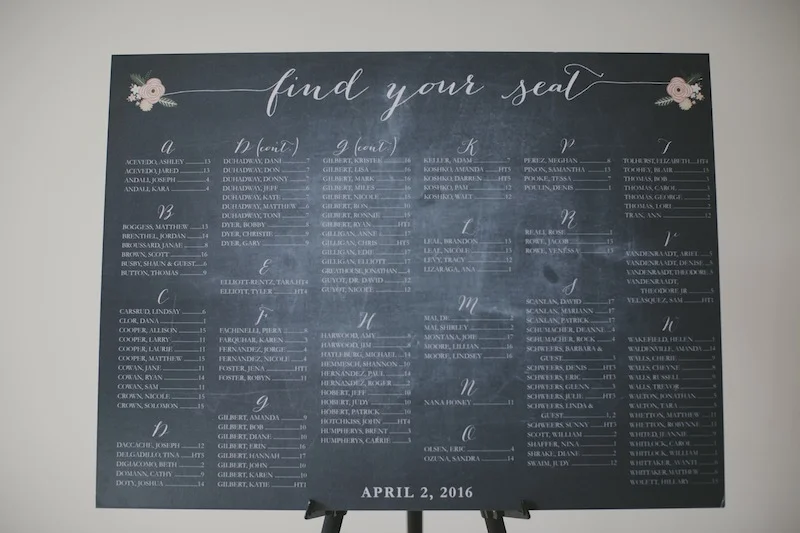 find your seat
A
ACEVEDO, ASHLEY 13
ACEVEDO, JARED 13
ANDALI, JOSEPH 4
ANDALI, KARA 4
B
BOGGESS, MATTHEW 13
BRENTHEL, JORDAN 14
BROUSSARD, JANAE 8
BROWN, SCOTT 16
BUSBY, SHAUN & GUEST 6
BUTTON, THOMAS 9
C
CARSRUD, LINDSAY 6
CLOR, DANA
COOPER, ALLISON 15
COOPER, LARRY 11
COOPER, LAURIE 11
COOPER, MATTHEW 15
COWAN, JANE 11
COWAN, RYAN 14
COWAN, SAM
CROWN, NICOLE 15
CROWN, SOLOMON 15
D
DACCACHE, JOSEPH 12
DELGADILLO, TINA HT5
DIGIACOMO, BETH 2
DOMANN, CATHY 9
DOTY, JOSHUA 14
D (cont.)
DUHADWAY, DANE 7
DUHADWAY, DON 7
DUHADWAY, DONNY 7
DUHADWAY, JEFF
DUHADWAY, KATE
DUHADWAY, MATTHEW
DUHADWAY, TONI 7
DYER, BOBBY
DYER, CHRISTIE
DYER, GARY 9
E
ELLIOTT-RENTZ, TARA HT4
ELLIOTT, TYLER HT4
F
FACHINELLI, PIERA 8
FARQUHAR, KAREN
FERNANDEZ, JORGE 4
FERNANDEZ, NICOLE 4
FOSTER, JENA HT1
FOSTER, ROBYN 11
G
GILBERT, AMANDA 9
GILBERT, BOB 10
GILBERT, DIANE 10
GILBERT, ERIN 16
GILBERT, HANNAH 17
GILBERT, JOHN 10
GILBERT, KAREN 10
GILBERT, KATIE HT1
G (cont.)
GILBERT, KRISTEN
GILBERT, LISA 16
GILBERT, MARK
GILBERT, MILES 16
GILBERT, NICOLE
GILBERT, RON
GILBERT, RONNIE
GILBERT, RYAN
GILLIGAN, ANNE
GILLIGAN, CHRIS HT5
GILLIGAN, EDIE 17
GILLIGAN, ELLIOTT 17
GREATHOUSE, JONATHAN 4
GUYOT, DR. DAVID 12
GUYOT, NICOLE 12
H
HARWOOD, AMY
HARWOOD, JIM
HATLEBURG, MICHAEL 14
HEMMESCH, SHANNON
HERNANDEZ, PAUL
HERNANDEZ, ROGER 2
HOBERT, JEFF 10
HOBERT, JUDY 10
HOBERT, PATRICK 10
HOTCHKISS, JOHN HT4
HUMPHERYS, BRENT 3
HUMPHERYS, CARRIE 3
K
KELLER, ADAM 7
KOSHKO, AMANDA HT3
KOSHKO, DARREN
KOSHKO, PAM 12
KOSHKO, WALT 12
L
LEAL, BRANDON 13
LEAL, NICOLE 13
LEVY, TRACY
LIZARAGA, ANA 1
M
MAL, DE
MAL, SHIRLEY 2
MONTANA, JOIE 17
MOORE, LILLIAN 16
MOORE, LINDSEY 16
N
NANA HONEY 11
O
OLSEN, ERIC 4
OZUNA, SANDRA 14
P
PEREZ, MEGHAN 8
PINSON, SAMANTHA 13
POOKE, TESSA 7
POULIN, DENIS 1
R
REALI, ROSE
ROWE, JACOB
ROWE, VENESSA
S
SCANLAN, DAVID 17
SCANLAN, MARIANN 17
SCANLAN, PATRICK 17
SCHUMACHER, DEANNE 4
SCHUMACHER, ROCK 4
SCHWEERS, BARBARA &
GUEST
SCHWEERS, DENIS HT3
SCHWEERS, ERIC HT3
SCHWEERS, GLENN 3
SCHWEERS, JULIE HT3
SCHWEERS, LINDA &
GUEST 1, 2
SCHWEERS, SUNNY HT3
SCOTT, WILLIAM 2
SHAFFER, NINA
SHRAKE, DIANE 2
SWAIM, JUDY 12
T
TOLHURST, ELIZABETH HT4
TOOHEY, BLAIR 15
THOMAS, BOB
THOMAS, CAROL
THOMAS, GEORGE 2
THOMAS, LORI 2
TRAN, ANN 12
V
VANDENRAADT, ARIEL
VANDENRAADT, DENISE
VANDENRAADT, THEODORE
VANDENRAADT,
THEODORE III
VELASQUEZ, SAM HT1
W
WAKEFIELD, HELEN
WALDENVILLE, AMANDA
WALLS, CHERIE
WALLS, CHEYNE
WALLS, RUSSELL
WALLS, TREVOR
WALTON, JONATHAN
WALTON, TARA
WHETTON, MATTHEW
WHETTON, ROBYNNE
WHITED, JEANNE
WHITLOCK, CAROL
WHITLOCK, WILLIAM
WHITTAKER, WANTE
WHITTAKER, MATTHEW
WOLETT, HILLARY
APRIL 2, 2016